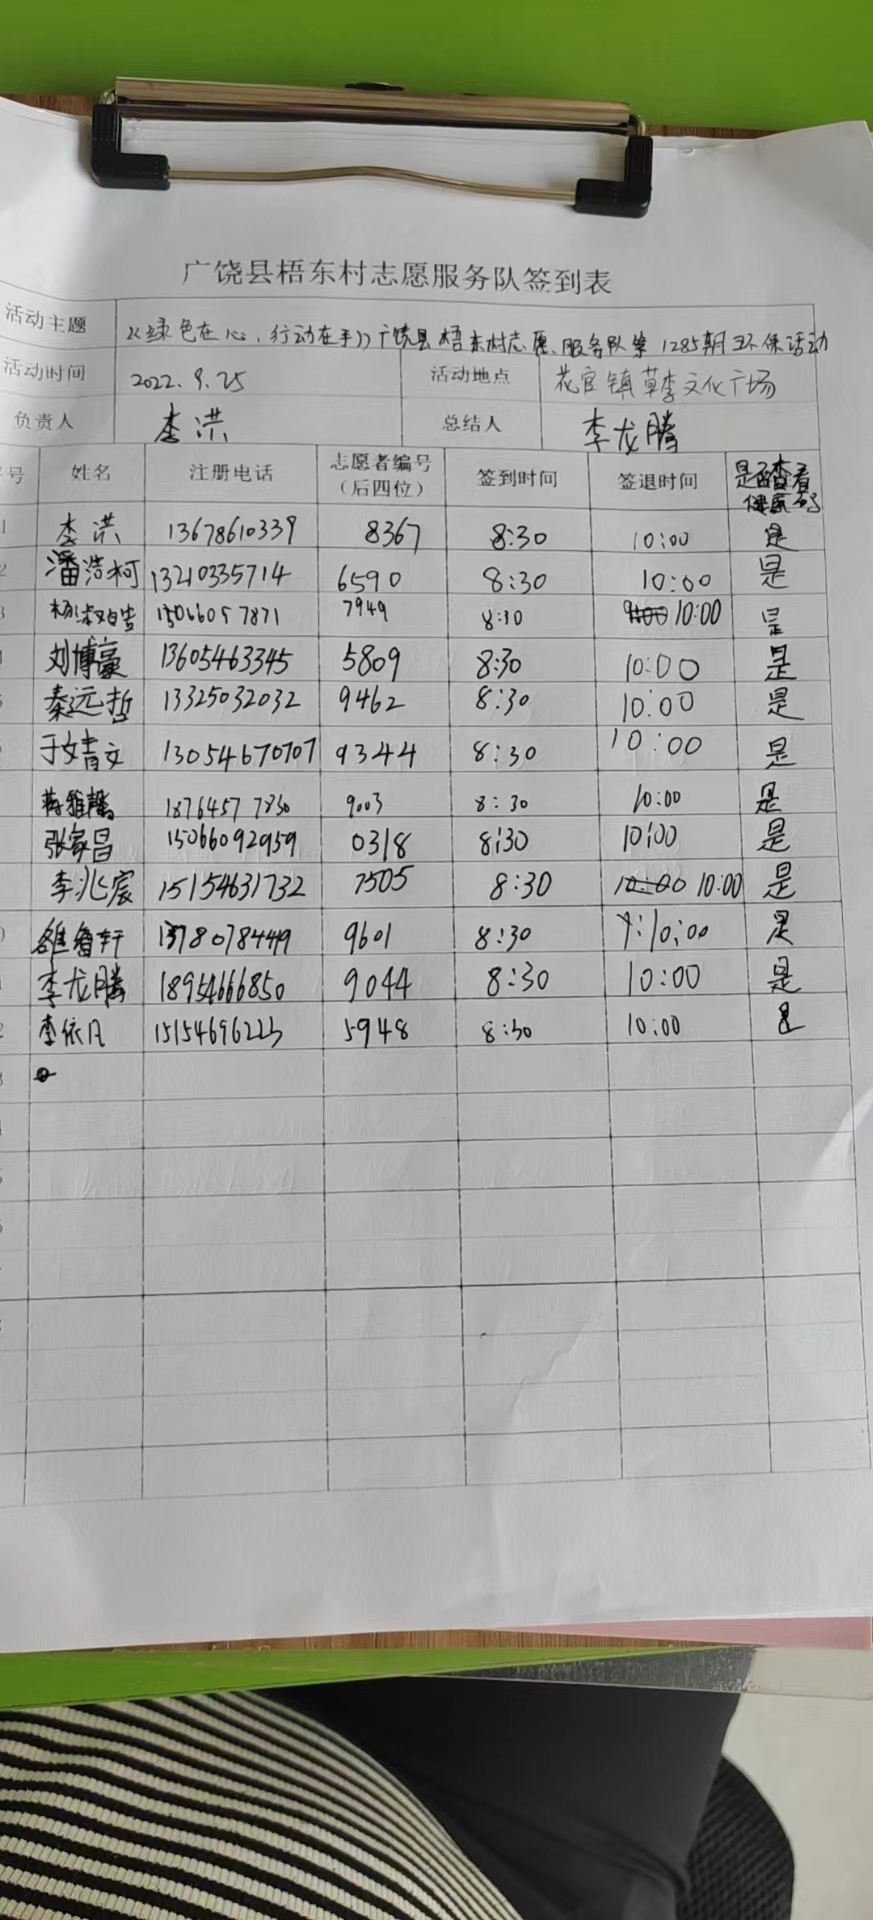 广饶县梧东村志愿服务队签到表
活动主题 《绿色在心,行动在手》广饶县梧东村志愿服务队第1285期环保活动
活动时间 2022.9.25 活动地点 花官镇草李文化广场
负责人 李洪 总结人 李龙腾
号 姓名 注册电话 志愿者编号(后四位) 签到时间 签退时间 是否查看健康码
1 李洪 13678610339 8367 8:30 10:00 是
2 潘浩柯 13210335714 6590 8:30 10:00 是
3 15066057871 7949 8:30 10:00 是
刘博豪 13605463345 5809 8:30 10:00 是
秦远哲 13325032032 9462 8:30 10:00 是
于婧文 13054670707 9344 8:30 10:00 是
蒋雅馨 18764577830 9003 8:30 10:00 是
张家昌 15066092959 0318 8:30 10:00 是
李兆宸 15154631732 7505 8:30 10:00 10:00 是
1378078449 9601 8:30 10:00 是
李龙腾 18954666850 9044 8:30 10:00 是
2 李依凡 15154696223 5948 8:30 10:00 是